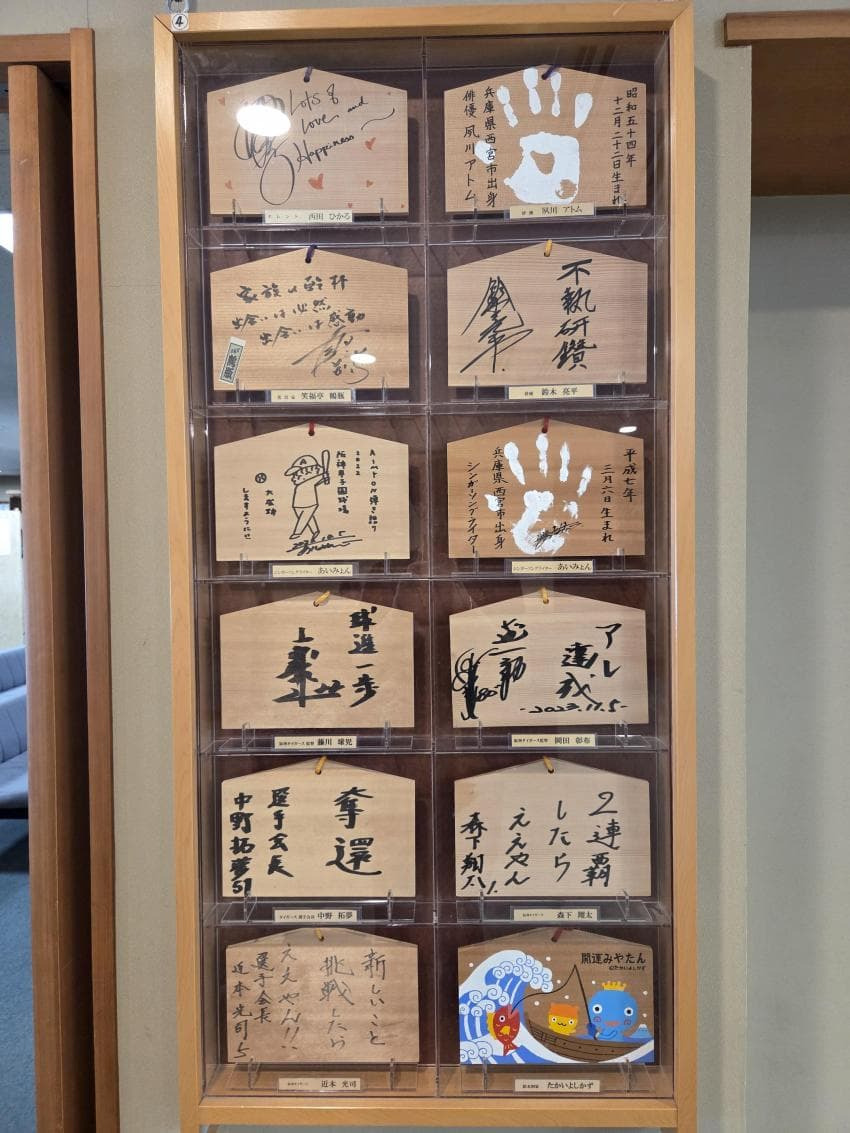 4
Lots of
Love and
Happiness
タレント 西田 ひかる
昭和五十四年
十二月二十二日生まれ
兵庫県西宮市出身
俳優 夙川アトム
俳優 夙川 アトム
家族に乾杯
出会いは必然
出会いは感動
鶴瓶
落語家 笑福亭 鶴瓶
不執研鑽
俳優 鈴木 亮平
AIMYON弾き語り
2022
阪神甲子園球場
大成功
しますようにせ
シンガーソングライター あいみょん
平成七年
三月六日 生まれ
兵庫県西宮市出身
シンガーソングライター
シンガーソングライター あいみょん
球進一歩
阪神タイガース 監督 藤川 球児
アレ
達成
-2023.11.5-
阪神タイガース監督 岡田 彰布
奪還
選手会長
中野拓夢51
タイガース 選手会長 中野 拓夢
2連覇
したら
ええやん
森下翔太
阪神タイガース 森下 翔太
新しいこと
挑戦したら
ええやん!!
選手会長
近本光司5
阪神タイガース 近本 光司
開運みやたん
©たかいよしかず
絵本作家 たかいよしかず